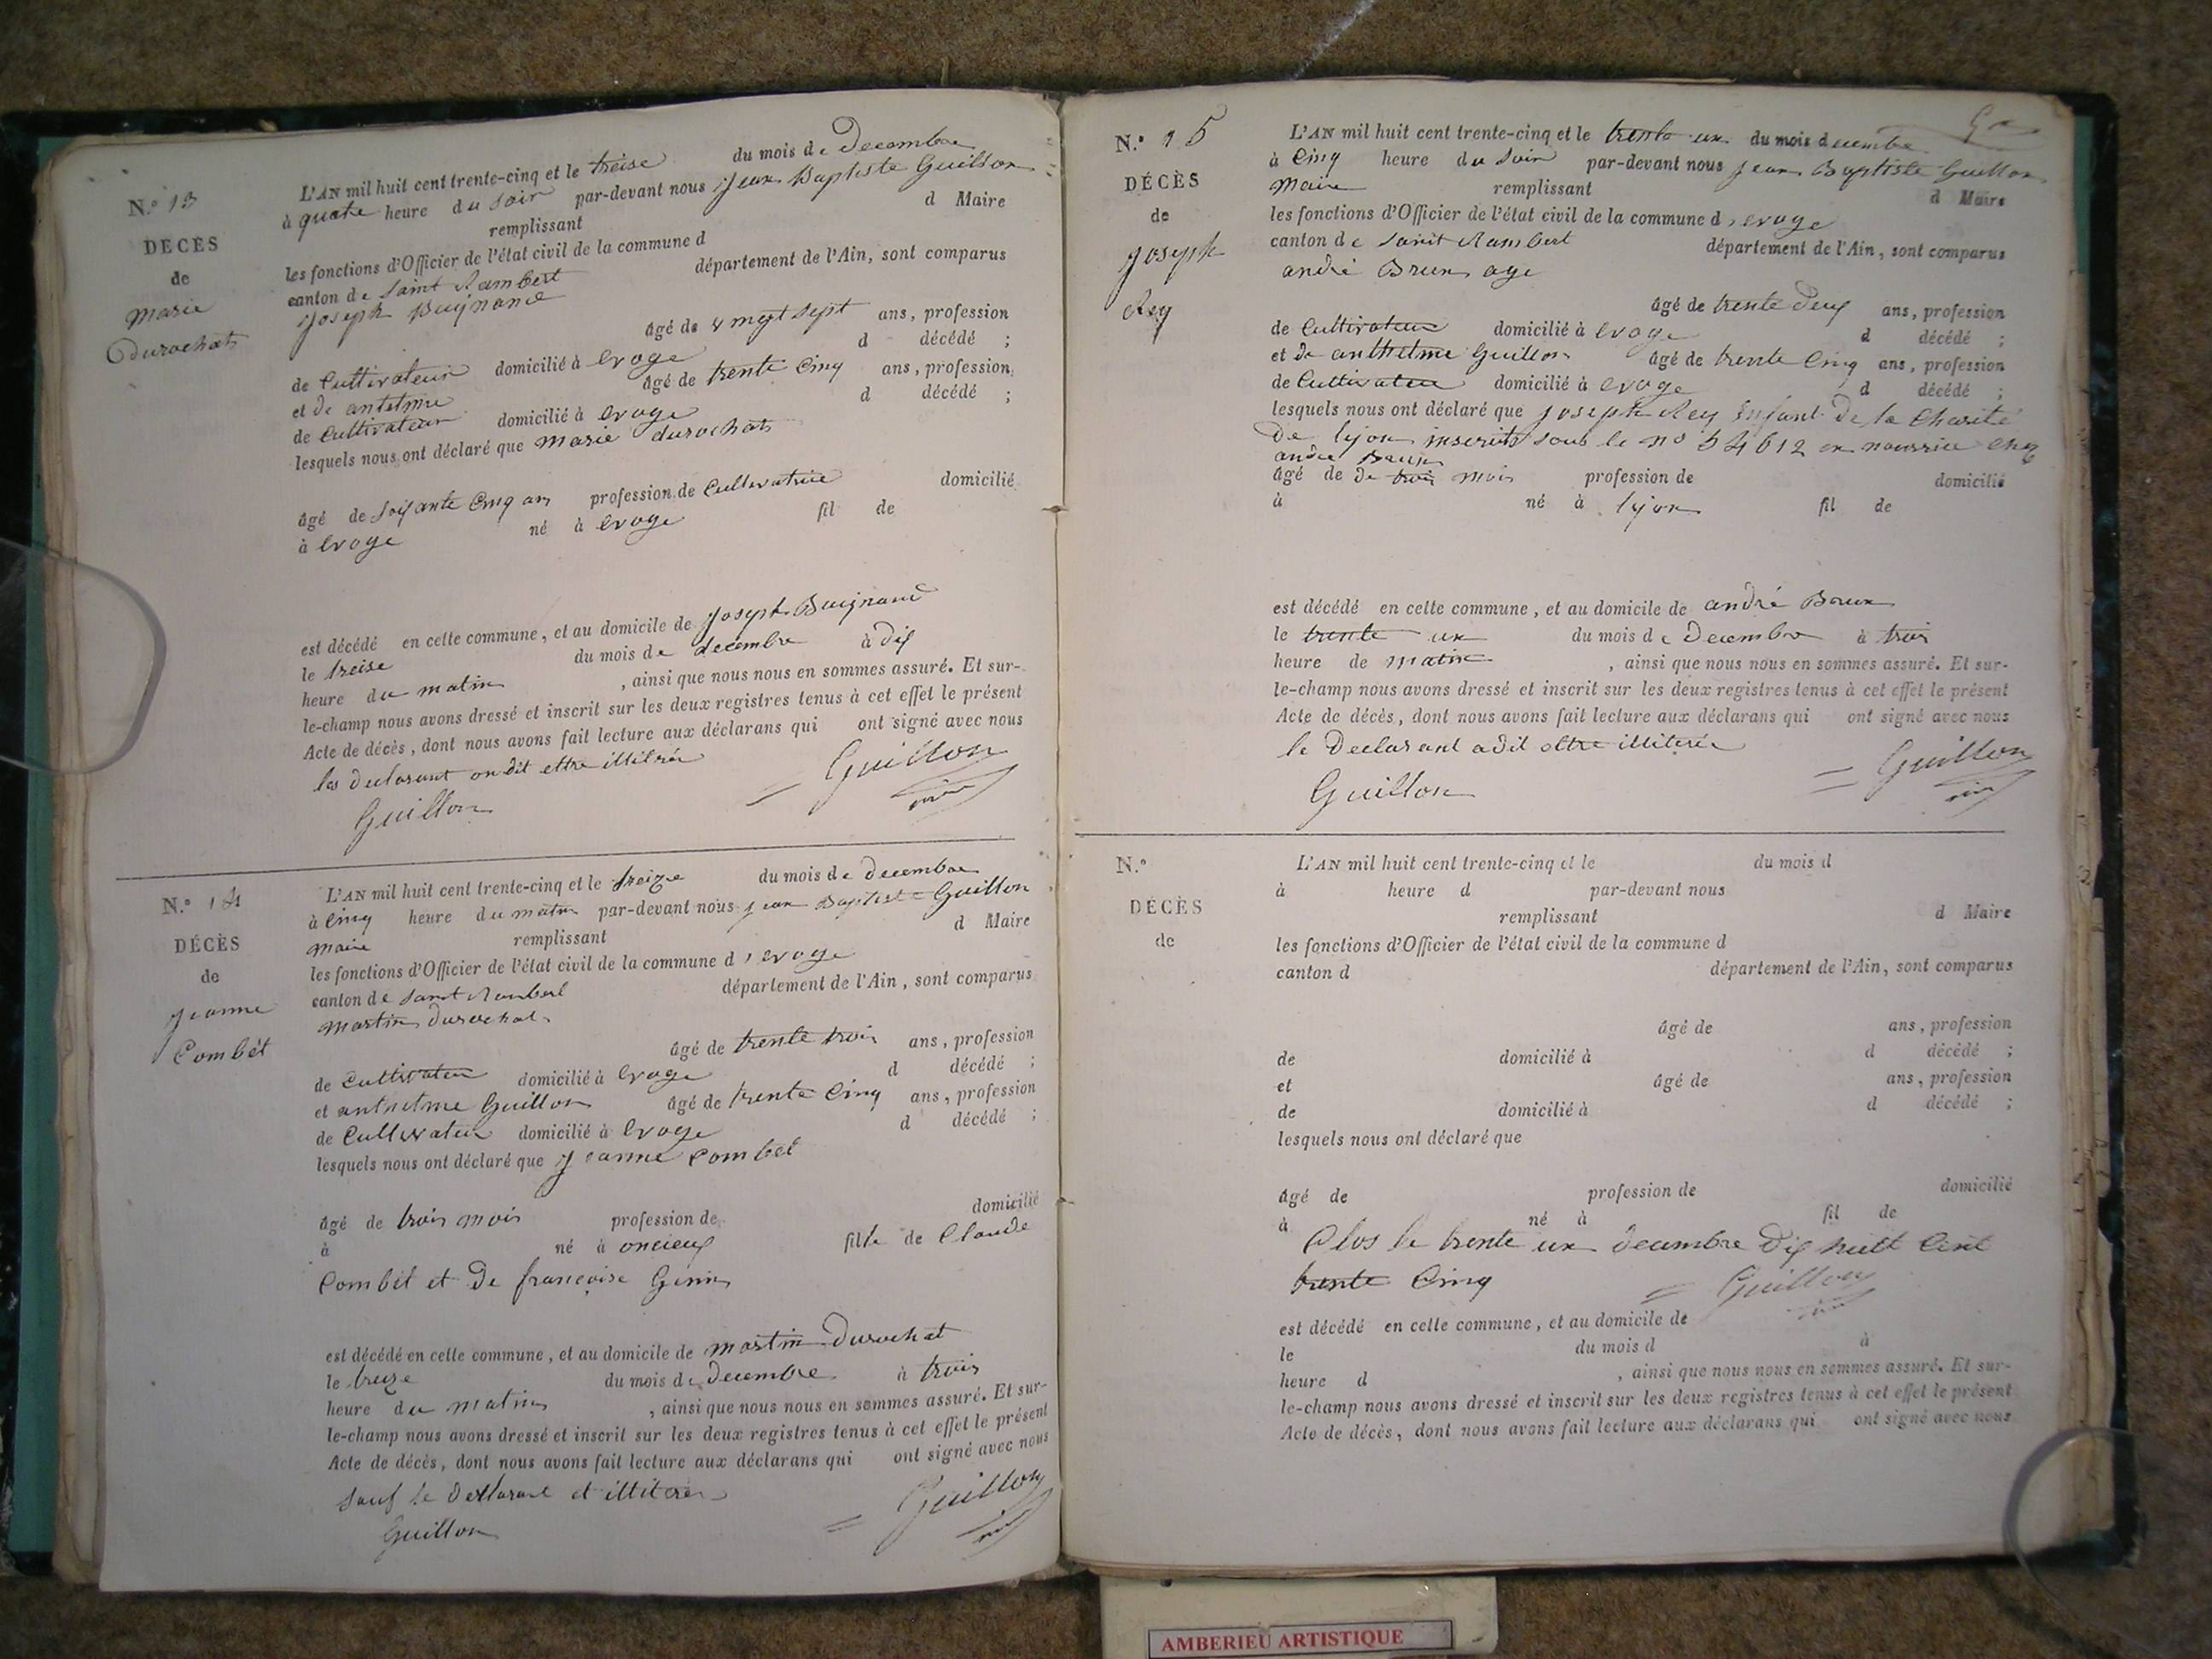 N.º 13
DÉCÈS
de
marie
Durochat
L'AN mil huit cent trente-cinq et le treise du mois de Decembre
à quatre heure du soir par-devant nous jean Baptiste Guillon
remplissant d Maire
les fonctions d'Officier de l'état civil de la commune d
canton de saint Rambert département de l'Ain, sont comparus
joseph Buignand
âgé de vingt sept ans, profession
de Cultivateur domicilié à evoge d décédé ;
et de antelme âgé de trente Cinq ans, profession
de Cultivateur domicilié à evoge d décédé ;
lesquels nous ont déclaré que marie durochat
âgé de soixante Cinq ans profession de Cultivatrice domicilié
à evoge né à evoge fil de
est décédé en cette commune, et au domicile de joseph Buignand
le treise du mois de decembre à dix
heure du matin , ainsi que nous nous en sommes assuré. Et sur-
le-champ nous avons dressé et inscrit sur les deux registres tenus à cet effet le présent
Acte de décès, dont nous avons fait lecture aux déclarans qui ont signé avec nous
les declarant on dit ettre illitrée
Guillon Guillon
N.º 14
DÉCÈS
de
jeanne
Combét
L'AN mil huit cent trente-cinq et le treize du mois de decembre
à Cinq heure du matin par-devant nous jean Baptiste Guillon
maire remplissant d Maire
les fonctions d'Officier de l'état civil de la commune d, evoge
canton de saint Rambert département de l'Ain, sont comparus
martin durochat
âgé de trente trois ans, profession
de Cultivateur domicilié à Evoge d décédé ;
et anthelme Guillon âgé de trente Cinq ans, profession
de Cultivateur domicilié à Evoge d décédé ;
lesquels nous ont déclaré que jeanne Combét
âgé de trois mois profession de domicilié
à né à oncieux fille de Claude
Combét et de françoise Genin
est décédé en cette commune, et au domicile de martin Durochat
le treize du mois de Decembre à trois
heure du matin , ainsi que nous nous en sommes assuré. Et sur-
le-champ nous avons dressé et inscrit sur les deux registres tenus à cet effet le présent
Acte de décès, dont nous avons fait lecture aux déclarans qui ont signé avec nous
sauf le déclarant
Guillon Guillon
N.º 15
DÉCÈS
de
joseph
Rey
L'AN mil huit cent trente-cinq et le trente un du mois decembre
à Cinq heure du soir par-devant nous jean Baptiste Guillon
maire remplissant d Maire
les fonctions d'Officier de l'état civil de la commune d, evoge
canton de saint Rambert département de l'Ain, sont comparus
andré Brun age
âgé de trente deux ans, profession
de Cultivateur domicilié à evoge d décédé ;
et de anthelme Guillon âgé de trente Cinq ans, profession
de Cultivateur domicilié à evoge d décédé ;
lesquels nous ont déclaré que joseph Rey Enfant de la Charité
de lyon inscrit sous le no 54612 en nourrice chez
andré Brun
âgé de de trois mois profession de domicilié
à né à lyon fil de
est décédé en cette commune, et au domicile de andré Brun
le trente un du mois de Decembre à trois
heure de matin , ainsi que nous nous en sommes assuré. Et sur-
le-champ nous avons dressé et inscrit sur les deux registres tenus à cet effet le présent
Acte de décès, dont nous avons fait lecture aux déclarans qui ont signé avec nous
le Declarant a dit ettre illiterée
Guillon Guillon
N.º
DÉCÈS
de
L'AN mil huit cent trente-cinq et le du mois d
à heure d par-devant nous
remplissant d Maire
les fonctions d'Officier de l'état civil de la commune d
canton d département de l'Ain, sont comparus
âgé de ans, profession
de domicilié à d décédé ;
et âgé de ans, profession
de domicilié à d décédé ;
lesquels nous ont déclaré que
âgé de profession de domicilié
à né à fil de
Clos le trente un decembre dix huit Cent
trente Cinq Guillon
est décédé en cette commune, et au domicile de
le du mois d à
heure d , ainsi que nous nous en sommes assuré. Et sur-
le-champ nous avons dressé et inscrit sur les deux registres tenus à cet effet le présent
Acte de décès, dont nous avons fait lecture aux déclarans qui ont signé avec nous
AMBERIEU ARTISTIQUE